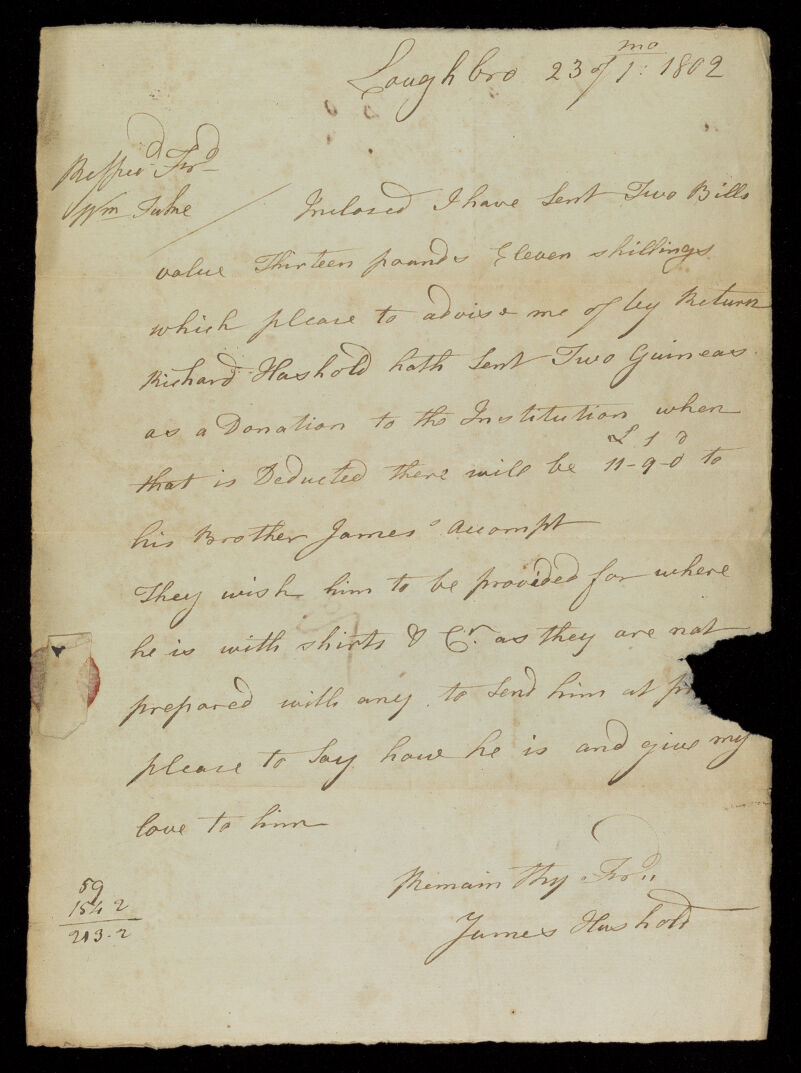 Loughbro 23 of 1: mo 1802
Resped Frd
Wm Tuke
Inclosed I have Sent Two Bills
value Thirteen pounds Eleven shillings
which please to advise me of by Return
Richard Hashold hath Sent Two Guineas
as a Donation to the Institution when
that is Deducted there will be £11-9-0 to
his Brother James's Accompt
They wish him to be provided for where
he is with shirts & Cr. as they are not
prepared with any to Send him at
please to Say how he is and give my
love to him
Remain thy Frd
James Hashold
59
154 2
213-2